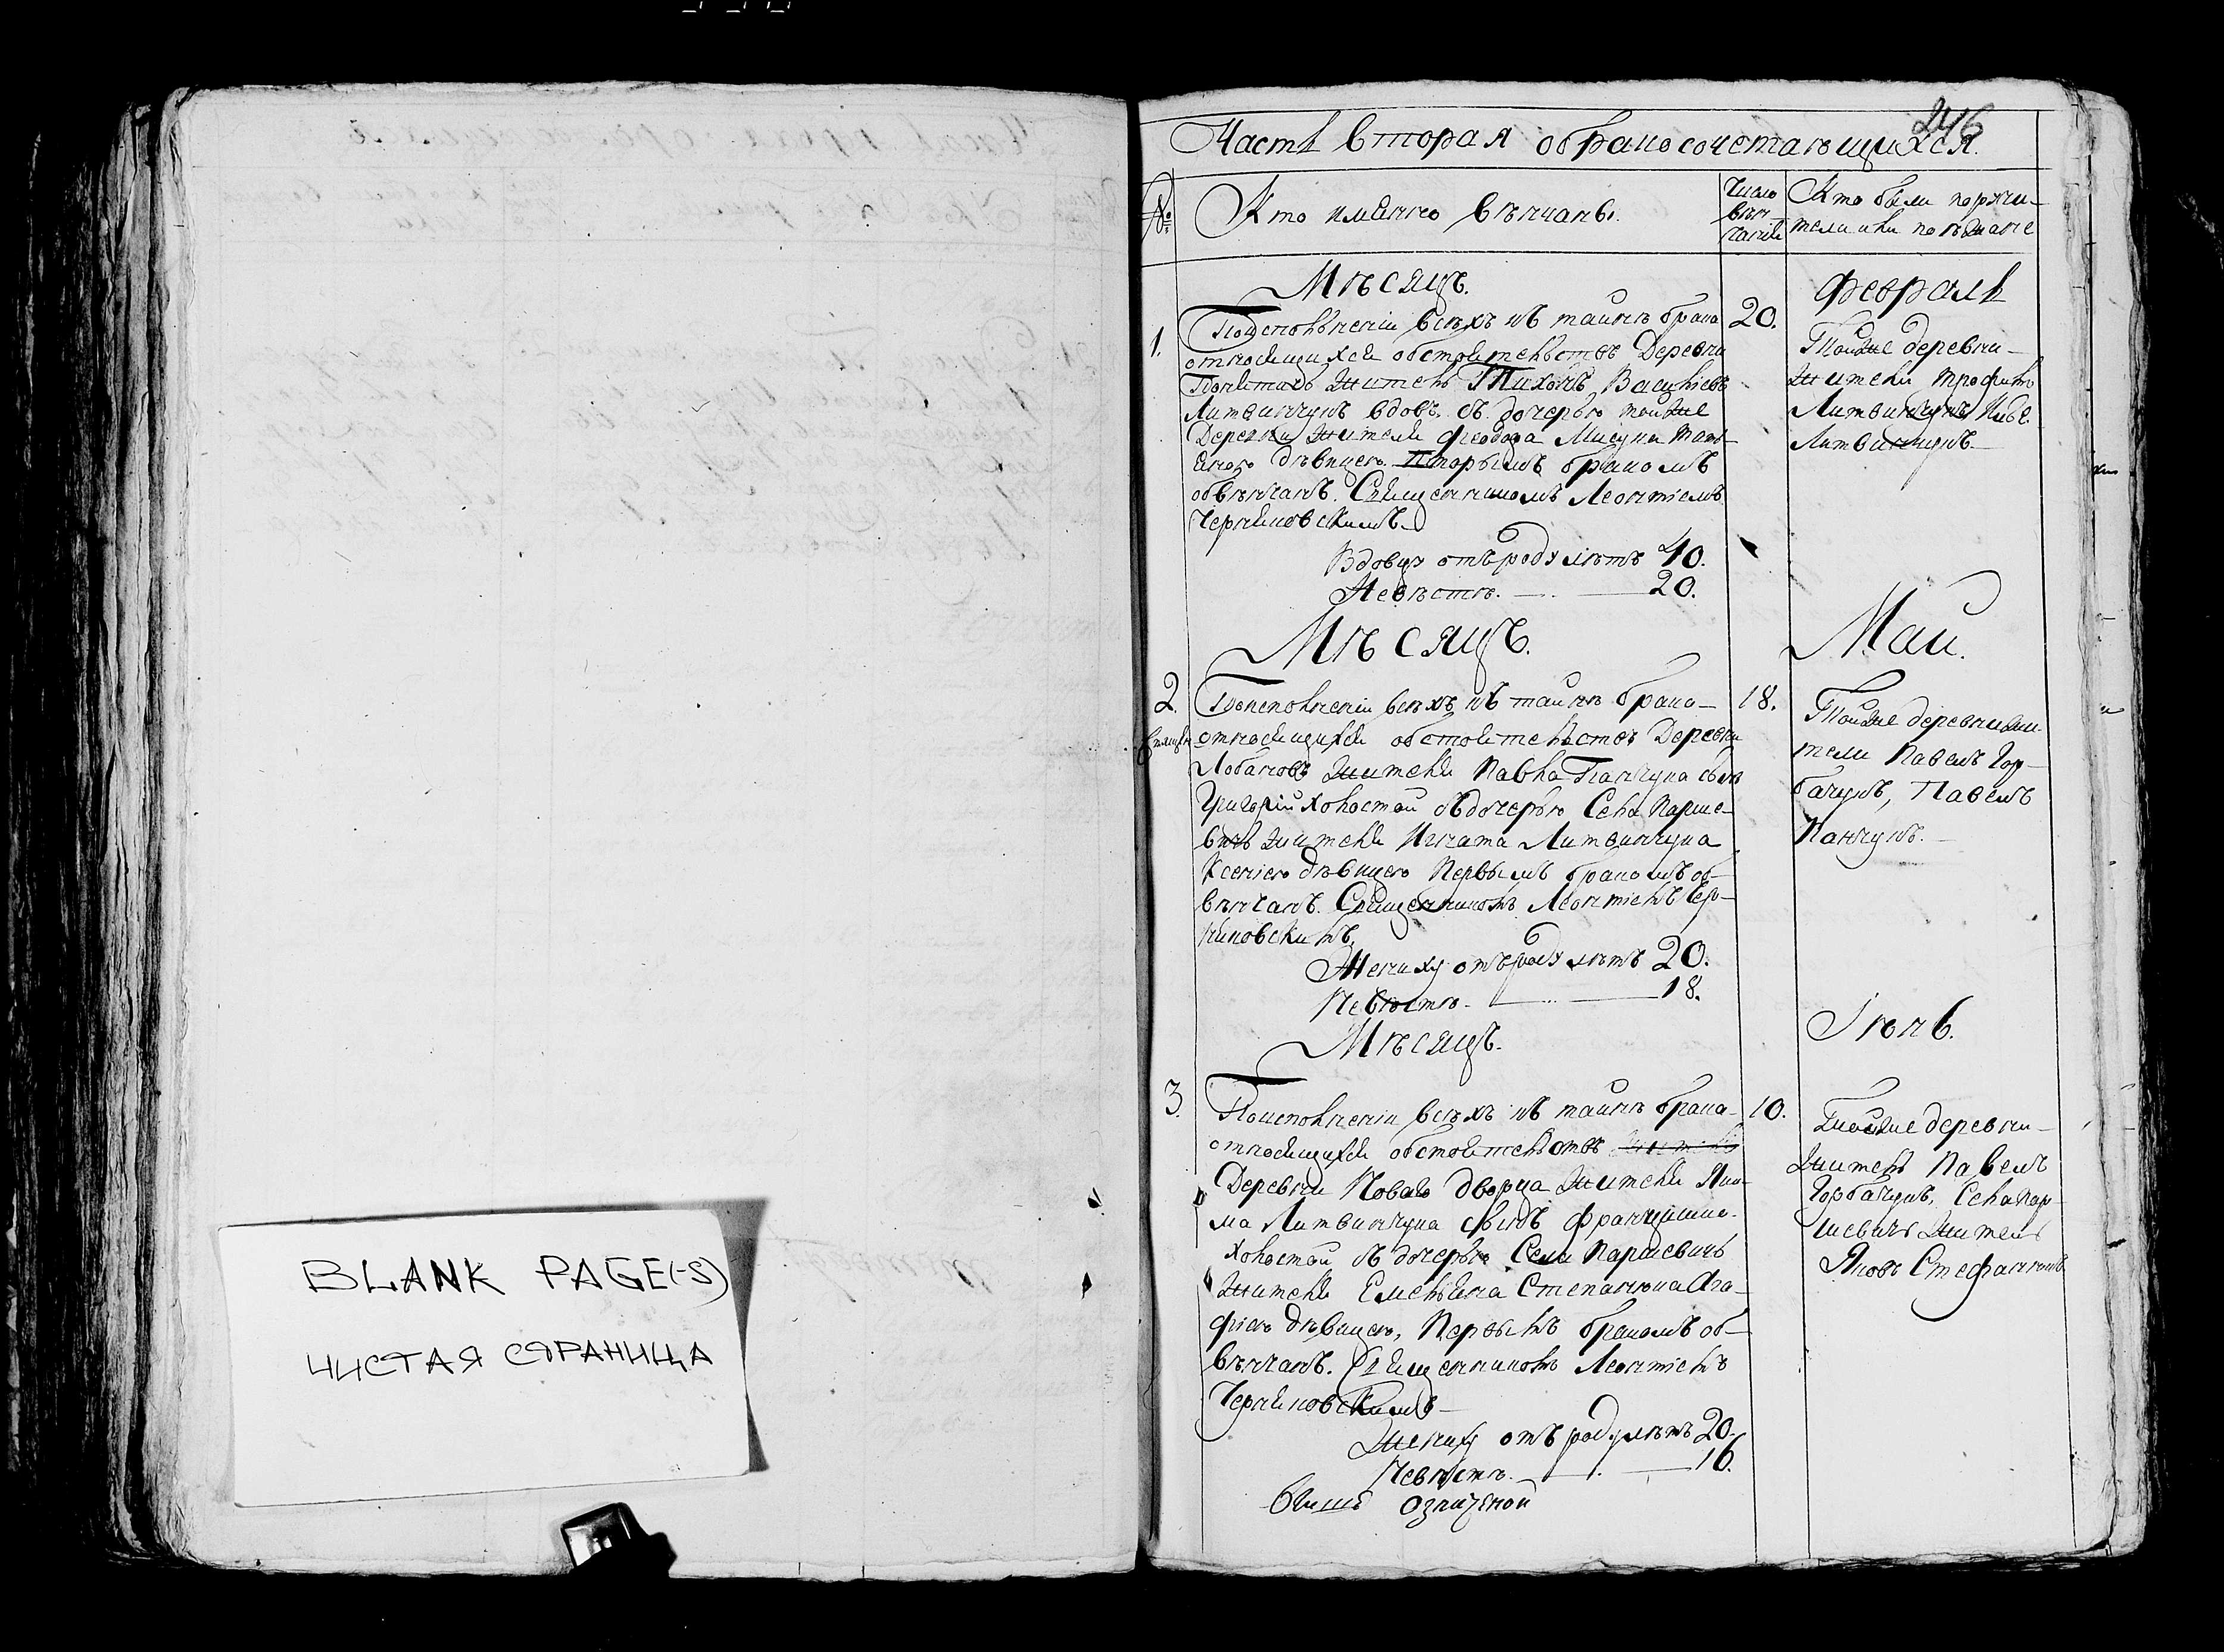 BLANK PAGE(-S)
ЧИСТАЯ СТРАНИЦА
246
Часть вторая о бракосочетающихся.
№
Кто имянно вѣнчаны.
Число
вѣн-
чаній
Кто были поручи-
тели или поѣзжане
Мѣсяцъ.
Февраль
1.
По исполненіи всѣхъ къ тайнѣ брака
относящихся обстоятельствъ Деревни
житель Тихонъ Василіевъ
Литвинчукъ вдовъ. съ дочерью тойже
Деревни жителя Феодора Мисуна
дѣвицею вторымъ бракомъ
обвѣнчанъ. Священникомъ Леонтіемъ
Черняковскимъ
Вдовцу отъ роду лѣтъ 40.
Невѣстѣ. — 20.
20.
Тойже деревни
жители Трофимъ
Литвинчукъ
Литвинчукъ
Мѣсяцъ.
Май.
2.
По исполненіи всѣхъ къ тайнѣ брака
относящихся обстоятельствъ Деревни
жителя Павла Панчука сынъ
Григорій холостой съ дочерью Села Парше-
вичъ жителя Игната Литвинчука
Ксеніею дѣвицею Первымъ бракомъ об-
вѣнчанъ. Священникомъ Леонтіемъ Чер-
няковскимъ.
Жениху отъ роду лѣтъ 20.
Невѣстѣ — 18.
18.
Тойже деревни жи-
тели Павелъ Гор-
бачукъ, Павелъ
Панчукъ.
Мѣсяцъ.
Іюнь.
3.
По исполненіи всѣхъ къ тайнѣ брака
относящихся обстоятельствъ
Деревни Новаго дворца жителя Яки-
ма Литвинчука сынъ Францишко
холостой съ дочерью Села Паршевичъ
жителя Емельяна Степанюка Ага-
фіею дѣвицею, Первымъ бракомъ об-
вѣнчанъ. Священникомъ Леонтіемъ
Черняковскимъ
Жениху отъ роду лѣтъ 20.
Невѣстѣ. — 16.
10.
Тойже деревни
житель Павелъ
Горбачукъ, Села Пар-
шевичъ житель
Яковъ Стефанюкъ